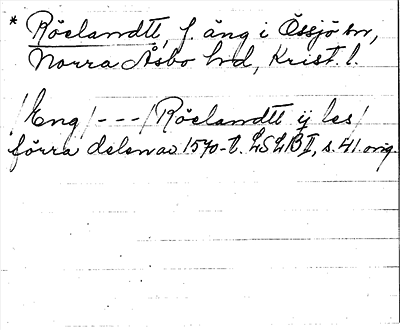 * Röelandtt, f. äng i Össjö sn,
Norra Åsbo hd, Krist. l.
/Eng/---/Röelandtt ij les/
förra delen av 1570-t. LSLB II, s. 41 orig.